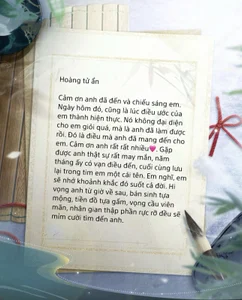 Hoàng tử ẩn
Cảm ơn anh đã đến và chiếu sáng em.
Ngày hôm đó, cũng là lúc điều ước của
em thành hiện thực. Nó không đại diện
cho em giỏi quá, mà là anh đã làm được
rồi. Đó là điều mà anh đã mang đến cho
em. Cảm ơn anh rất rất nhiều💗. Gặp
được anh thật sự rất may mắn, năm
tháng ấy có vạn điều đến, cuối cùng lưu
lại trong tim em một cái tên. Em nghĩ, em
sẽ nhớ khoảnh khắc đó suốt cả đời. Hi
vọng anh từ giờ về sau, bán sinh tựa
mộng, tiền đồ tựa gấm, vọng cầu viên
mãn, nhân gian thập phần rực rỡ đều sẽ
mỉm cười tìm đến anh.